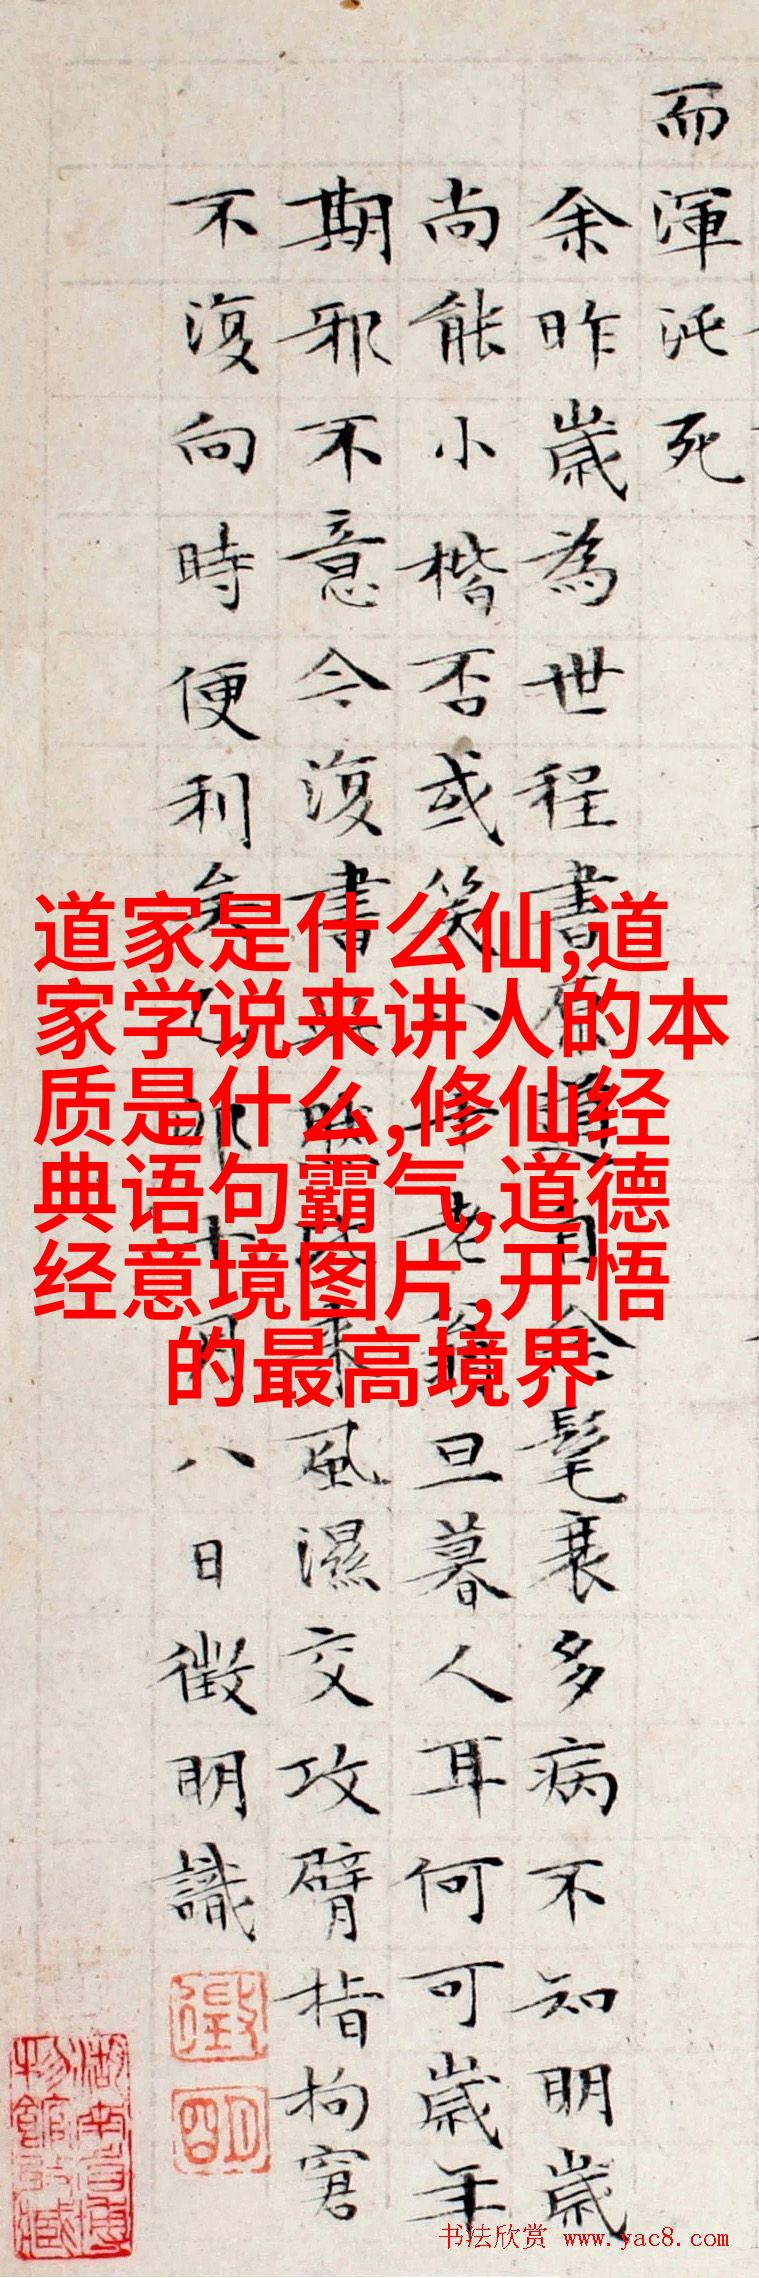 而渾沌死
余昨歲為世程書自念髦衰多病不知明歲
尚能小楷否或笑八十老翁旦暮人耳何可歲年
期邪不意今復書風濕交攻臂指拘窘
不復向時便利矣乙卯十月八日徵明識
道家是什么仙,道
家学说来讲人的本
质是什么,修仙经
典语句霸气,道德
经意境图片,开悟
的最高境界
书法欣赏 www.yac8.com